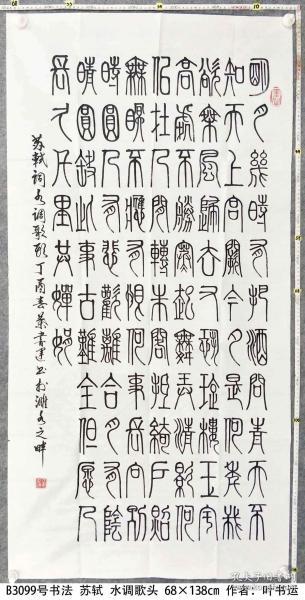 明月幾時有把酒問青天不
知天上宮闕今夕是何年我
欲乘風歸去又恐瓊樓玉宇
高處不勝寒起舞弄清影何
似在人間轉朱閣低綺戶照
無眠不應有恨何事長向別
時圓人有悲歡離合月有陰
晴圓缺此事古難全但願人
長久千里共嬋娟
苏轼词水调歌头丁酉春葉書運书於水之畔
B3099号书法 苏轼 水调歌头 68×138cm 作者：叶书运